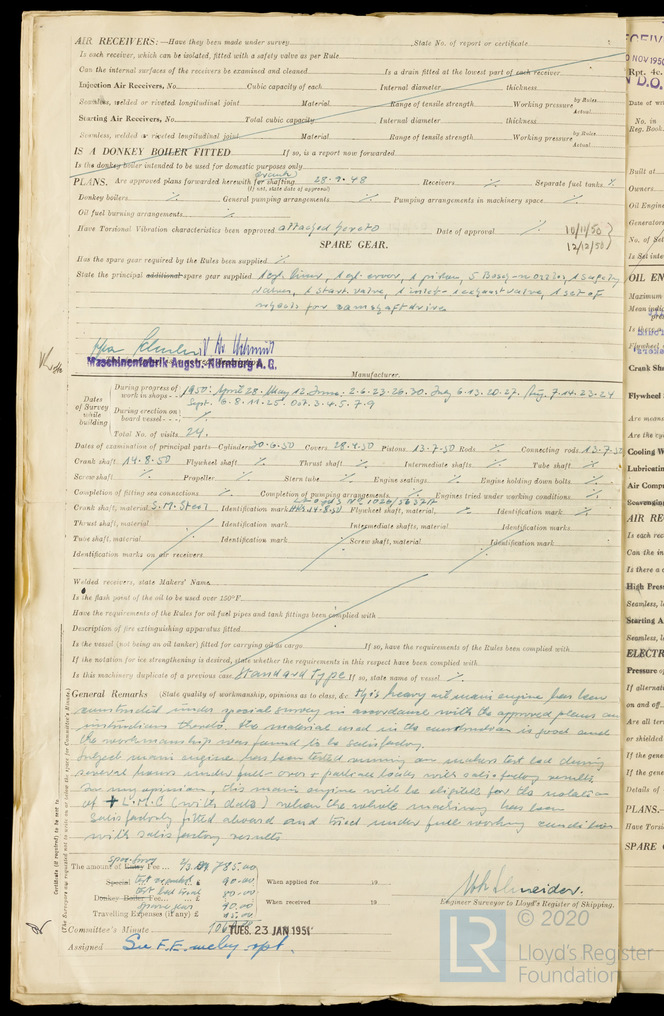 AIR RECEIVERS:—Have they been made under survey State No. of report or certificate
Is each receiver, which can be isolated, fitted with a safety valve as per Rule
Can the internal surfaces of the receivers be examined and cleaned Is a drain fitted at the lowest part of each receiver
Injection Air Receivers, No. Cubic capacity of each Internal diameter thickness
Seamless, welded or riveted longitudinal joint Material Range of tensile strength Working pressure by Rules Actual
Starting Air Receivers, No. Total cubic capacity Internal diameter thickness
Seamless, welded or riveted longitudinal joint Material Range of tensile strength Working pressure by Rules Actual
IS A DONKEY BOILER FITTED If so, is a report now forwarded
Is the donkey boiler intended to be used for domestic purposes only
PLANS. Are approved plans forwarded herewith for shafting 28.9.48 Receivers Separate fuel tanks
(If not, state date of approval)
Donkey boilers General pumping arrangements Pumping arrangements in machinery space
Oil fuel burning arrangements
Have Torsional Vibration characteristics been approved attached hereto Date of approval 10/11/50
12/12/50
SPARE GEAR.
Has the spare gear required by the Rules been supplied
State the principal additional spare gear supplied 1 cyl. liner, 1 cyl. cover, 1 piston, 5 Bosch nozzles, 1 safety
valve, 1 start. valve, 1 inlet- 1 exhaust valve, 1 set of
wheels for camshaft drive
Maschinenfabrik Augsb.-Nürnberg A.G.
Manufacturer.
Dates of Survey while building
During progress of work in shops - - 1950: April 28. May 12. June: 2.6.23.26.30. July 6.13.20.27. Aug. 7.14.23.24
Sept. 6.8.11.25. Oct. 3.4.5.7.9
During erection on board vessel - - -
Total No. of visits 24.
Dates of examination of principal parts—Cylinders 30.6.50 Covers 28.4.50 Pistons 13.7.50 Rods Connecting rods 13.7.50
Crank shaft 14.8.50 Flywheel shaft Thrust shaft Intermediate shafts Tube shaft
Screw shaft Propeller Stern tube Engine seatings Engine holding down bolts
Completion of fitting sea connections Completion of pumping arrangements Engines tried under working conditions
Crank shaft, material S.M. Steel Identification mark Lloyds No 14.8.50 Flywheel shaft, material Identification mark
Thrust shaft, material Identification mark Intermediate shafts, material Identification marks
Tube shaft, material Identification mark Screw shaft, material Identification mark
Identification marks on air receivers
Welded receivers, state Makers' Name
Is the flash point of the oil to be used over 150°F.
Have the requirements of the Rules for oil fuel pipes and tank fittings been complied with
Description of fire extinguishing apparatus fitted
Is the vessel (not being an oil tanker) fitted for carrying oil as cargo If so, have the requirements of the Rules been complied with
If the notation for ice strengthening is desired, state whether the requirements in this respect have been complied with
Is this machinery duplicate of a previous case Standard type If so, state name of vessel
General Remarks (State quality of workmanship, opinions as to class, &c. This heavy oil main engine has been
constructed under special survey in accordance with the approved plans and
instructions thereto. The material used in the construction is good and
the workmanship was found to be satisfactory.
Subject main engine has been tested running on makers test bed during
several hours under full- over & part-load loads with satisfactory results
In my opinion, this main engine will be eligible for the notation
of + L.M.C (with date) when the whole machinery has been
satisfactorily fitted aboard and tried under full working conditions
with satisfactory results
The amount of Entry Fee ... 785.00
Special 90.00 When applied for 19
test bed trial 80.00
Donkey Boiler Fee...
spare gear 90.00 When received 19
Travelling Expenses (if any) £
Engineer Surveyor to Lloyd's Register of Shipping.
Committee's Minute TUES. 23 JAN 1951
Assigned See F.E. mchy. rpt.
Certificate (if required) to be sent to
(The Surveyors are requested not to write on or below the space for Committee's Minute.)
© 2020
LR Lloyd's Register
Foundation
NOV 1950
Rpt. 4c.
D.O.
Date of
No. in
Reg. Book.
Built at
Owners
Oil Engine
Generators
No. of Set
Is Set inte
OIL EN
Maximum
Crank Sha
Flywheel
Are means
Are the cy
Cooling W
Lubricatin
Air Compr
Scavenging
AIR RE
Is each rece
Can the in
Is there a
High Press
Seamless, l
Starting A
Seamless, l
ELECTR
Pressure o
If alternat
on and of
Are all ter
or shielded
If the gene
If the gene
Details of
PLANS.—
Have Torsi
SPARE G